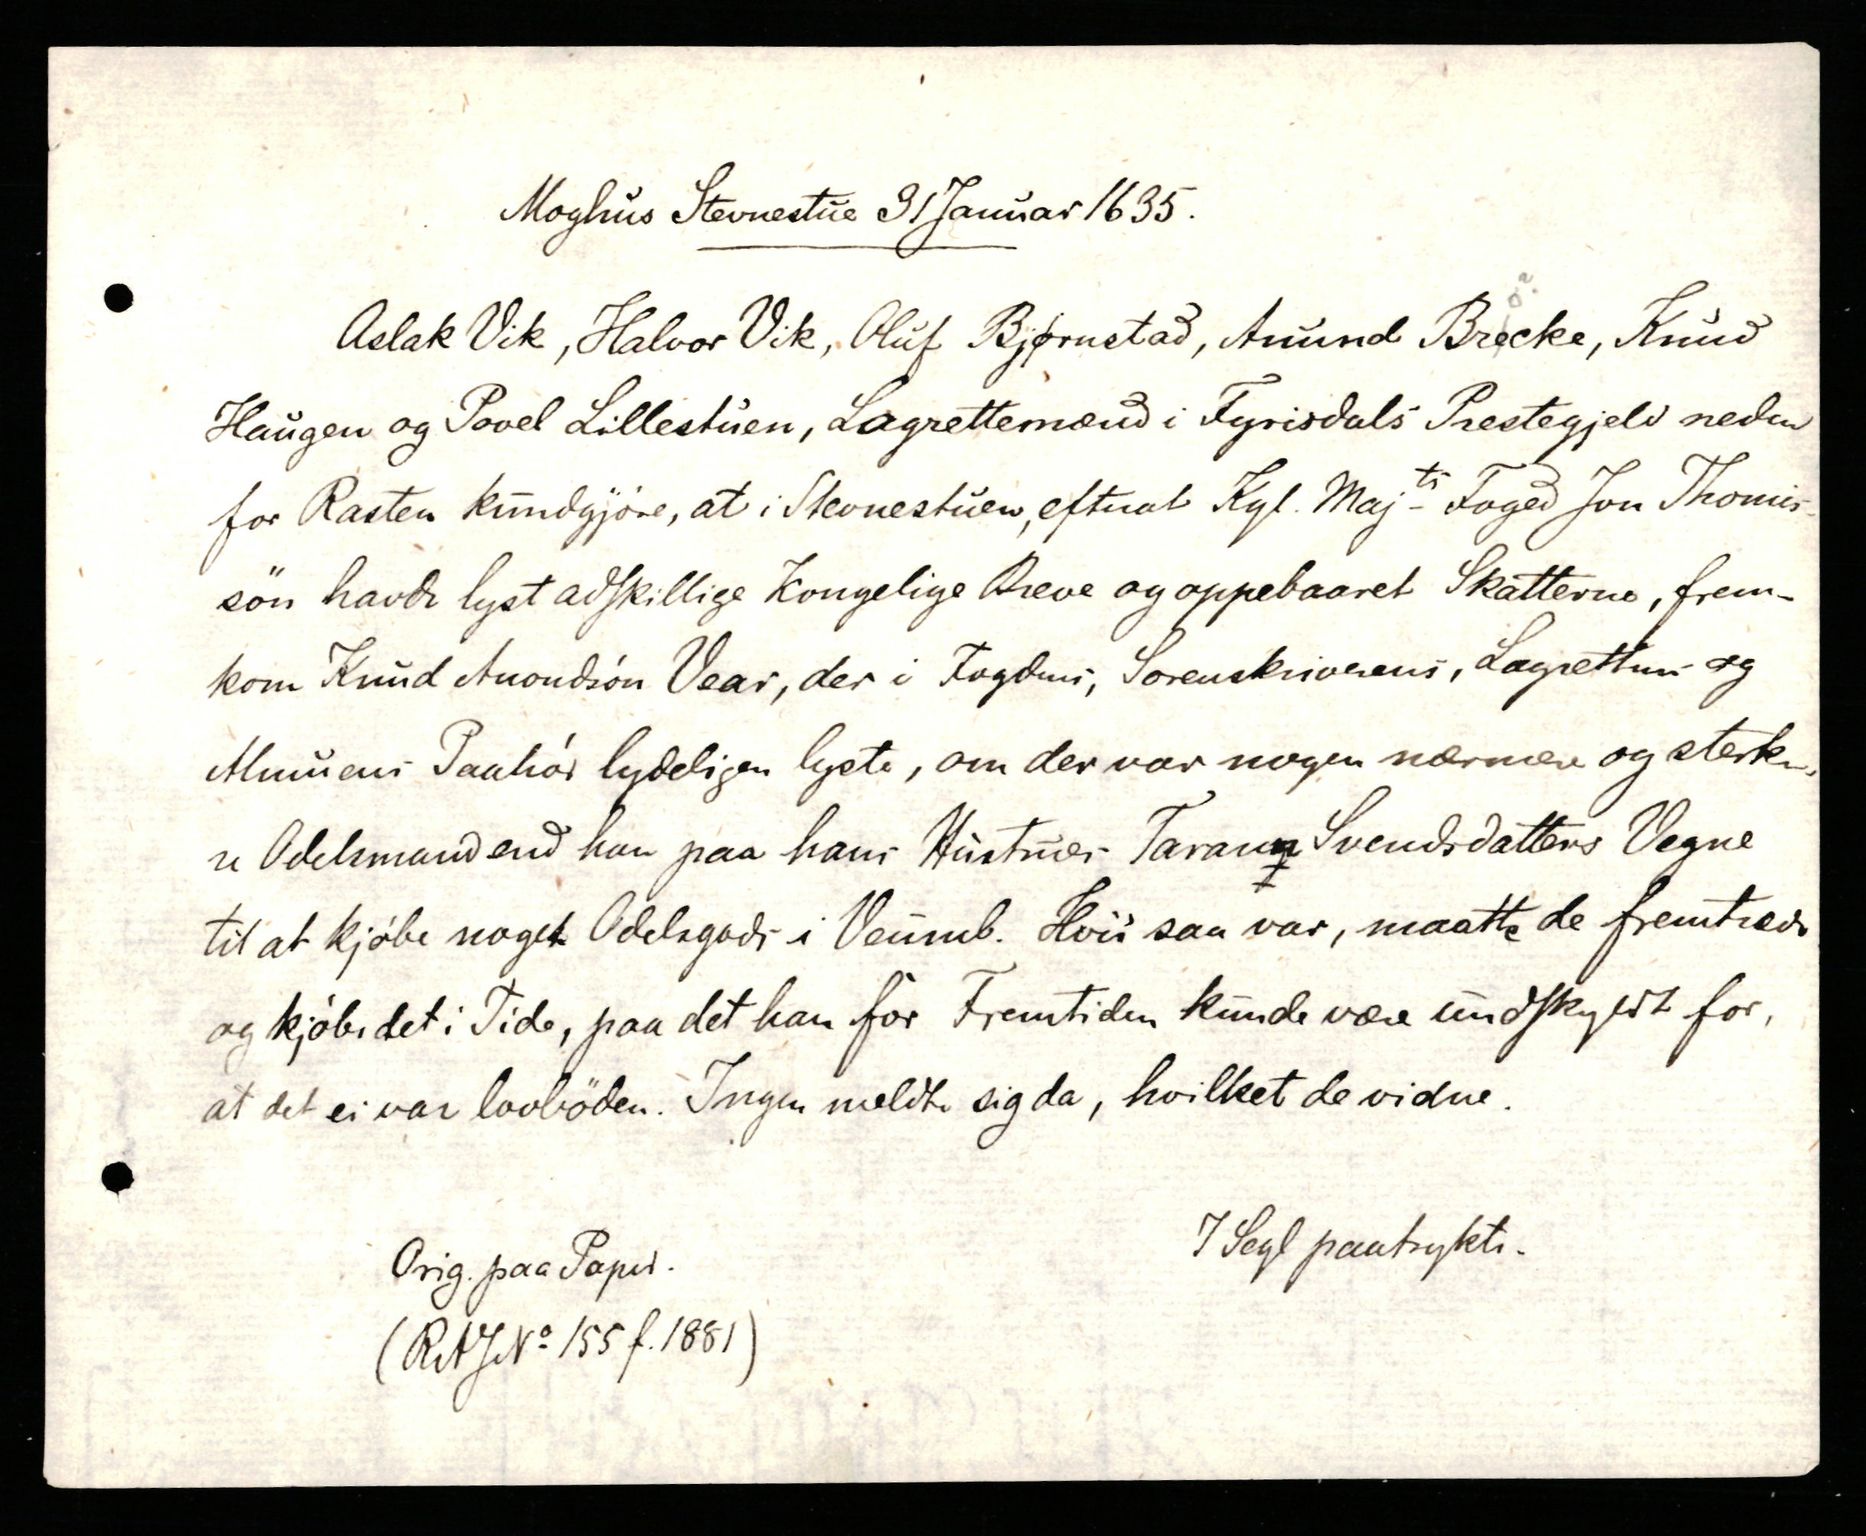 Moghus Stevnestue 31 Januar 1635.
Aslak Vik, Halvor Vik, Oluf Bjørnstad, Anund Brecke, Knud
Haugen og Povel Lillestuen, Lagrettemænd i Fyrisdals Prestegjeld neden
for Rasten kundgjøre, at i Stevnestuen, efterat Kgl. Maj-ts Foged Jon Thomis-
sön havde lyst adskillige Kongelige Breve og oppebaaret Skatterne, frem-
kom Knud Anondsön Vear, der i Fogdens, Sorenskriverens, Lagrettens og
Almuens Paahör lydeligen lyste, om der var nogen nærmere og sterke-
re Odelsmand end han paa hans Hustrues Svendsdatters Vegne
til at kjöbe noget Odelsgods i Veumb. Hvis saa var, maatte de fremtræde
og kjöbe det i Tide, paa det han for Fremtiden kunde være undskyldt for,
at det ei var lovböden. Ingen meldte sig da, hvilket de vidne.
7 Segl paatrykte.
Orig. paa Papir.
(RAJNo 155 f. 1881)